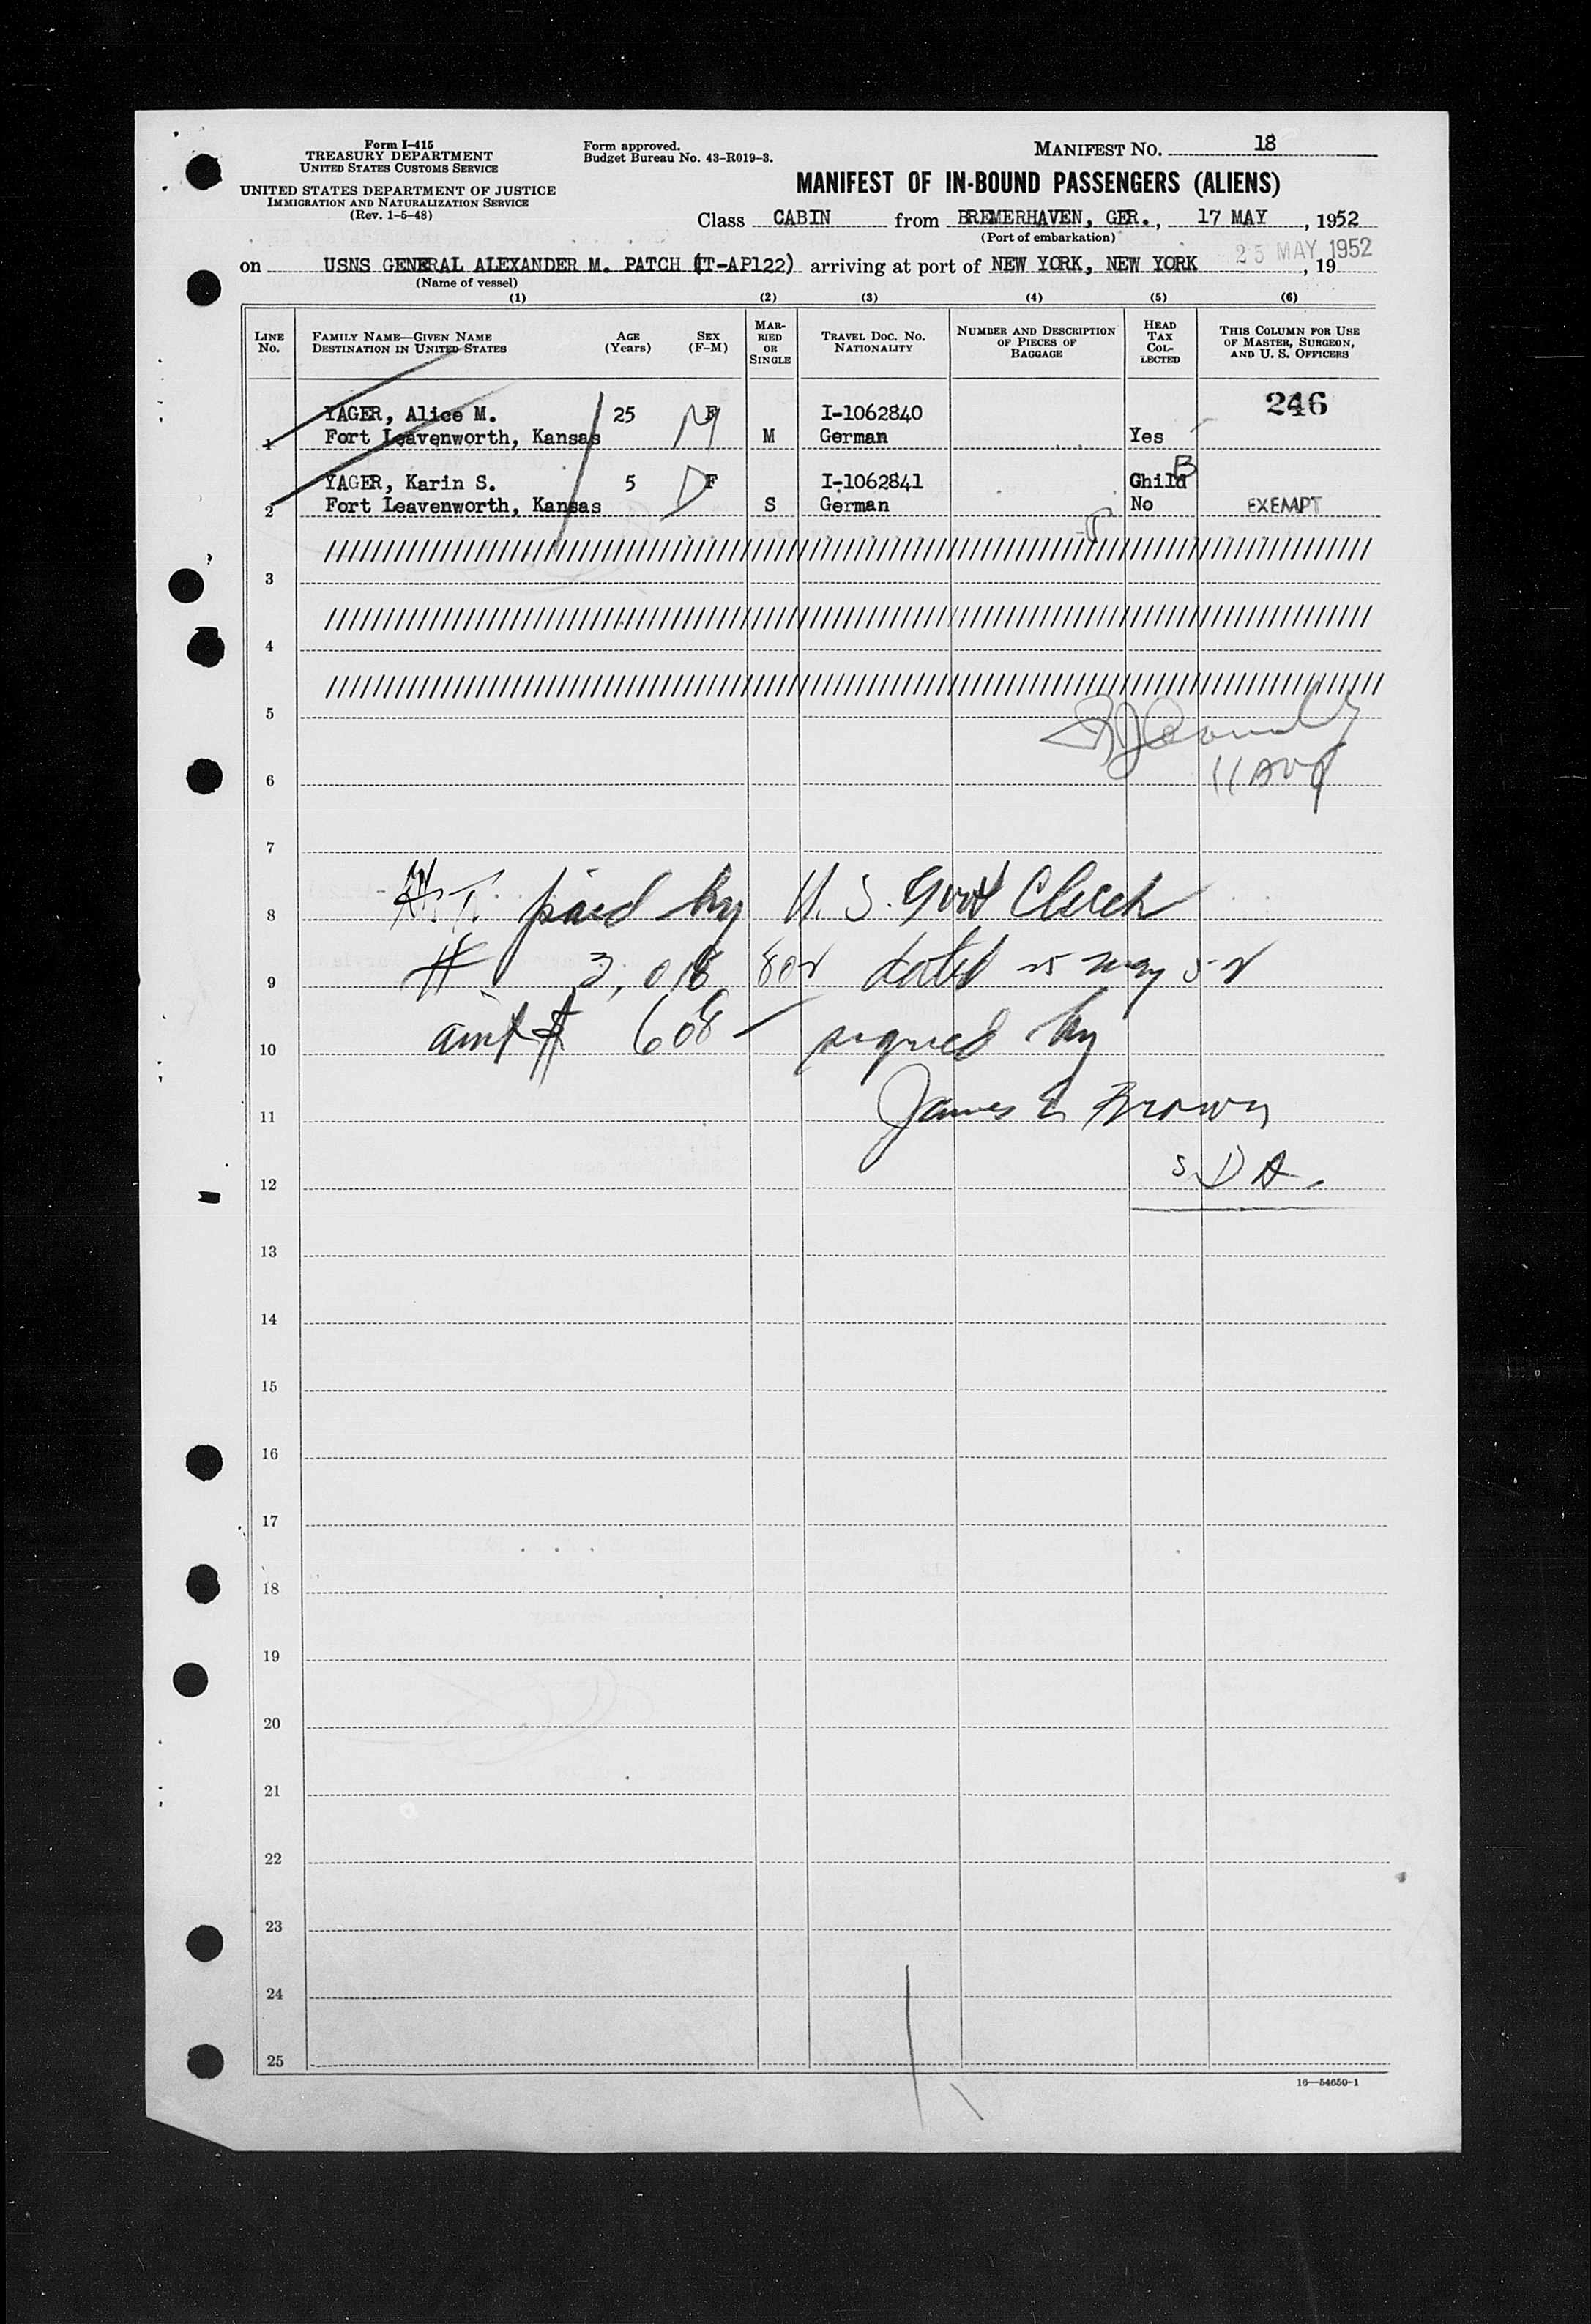 Form I-415
TREASURY DEPARTMENT
UNITED STATES CUSTOMS SERVICE
UNITED STATES DEPARTMENT OF JUSTICE
IMMIGRATION AND NATURALIZATION SERVICE
(Rev. 1-5-48)
Form approved.
Budget Bureau No. 43-R019-3.
MANIFEST NO. 18
MANIFEST OF IN-BOUND PASSENGERS (ALIENS)
Class CABIN from BREMERHAVEN, GER., 17 MAY, 1952
(Port of embarkation)
25 MAY 1952
on USNS GENERAL ALEXANDER M. PATCH (T-AP122) arriving at port of NEW YORK, NEW YORK, 19
(Name of vessel)
(1) (2) (3) (4) (5) (6)
LINE No. FAMILY NAME—GIVEN NAME DESTINATION IN UNITED STATES AGE (Years) SEX (F-M) MARRIED OR SINGLE TRAVEL DOC. NO. NATIONALITY NUMBER AND DESCRIPTION OF PIECES OF BAGGAGE HEAD TAX COLLECTED THIS COLUMN FOR USE OF MASTER, SURGEON, AND U. S. OFFICERS
246
YAGER, Alice M. 25 F I-1062840
1 Fort Leavenworth, Kansas M M German Yes
YAGER, Karin S. 5 F I-1062841 Child B
2 Fort Leavenworth, Kansas D S German No EXEMPT
3
4
5
6
7
8 H.T. paid by U.S. Govt Check
9 # 3,018 802 dated 25 May 52
10 amt $ 608 — signed by
11 James E Brown
12 S D A.
13
14
15
16
17
18
19
20
21
22
23
24
25
16—54650-1